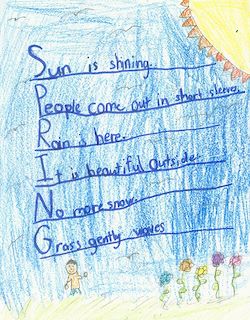 Sun is shining.
People come out in short sleeves.
Rain is here.
It is beautiful outside
No more snow.
Grass gently waves